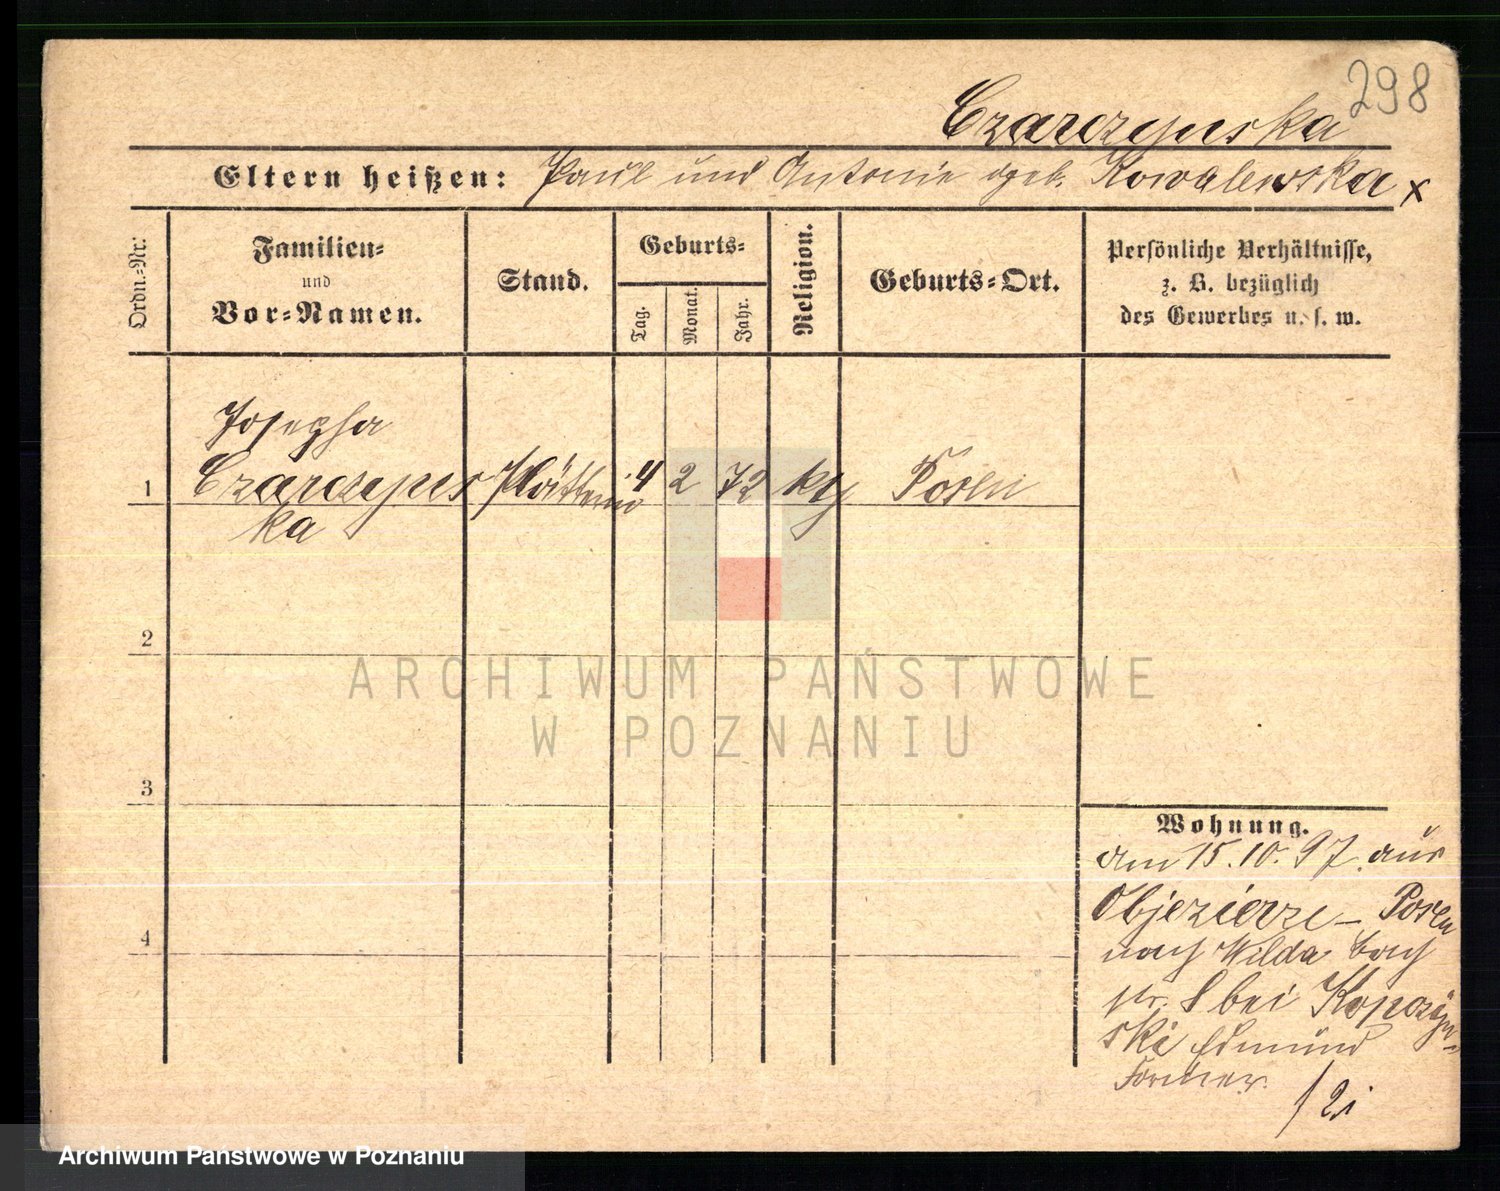 298
Czarczynska
Eltern heißen: Paul und Antonie geb. Kowalewska x
Ordn.-Nr:
Familien-
und
Vor-Namen.
Stand.
Geburts-
Tag.
Monat.
Jahr.
Religion.
Geburts-Ort.
Persönliche Verhältnisse,
z. B. bezüglich
des Gewerbes u. s. w.
Josepha
1 Czarczyns Plätterin 4 2 72 kth Posen
ka
2
3
4
Wohnung.
am 15.10.97. aus
Objezierze - Posen
nach Wilda Bach
str. 8 bei
ski Edmund
Former.
ARCHIWUM PAŃSTWOWE
W POZNANIU
Archiwum Państwowe w Poznaniu